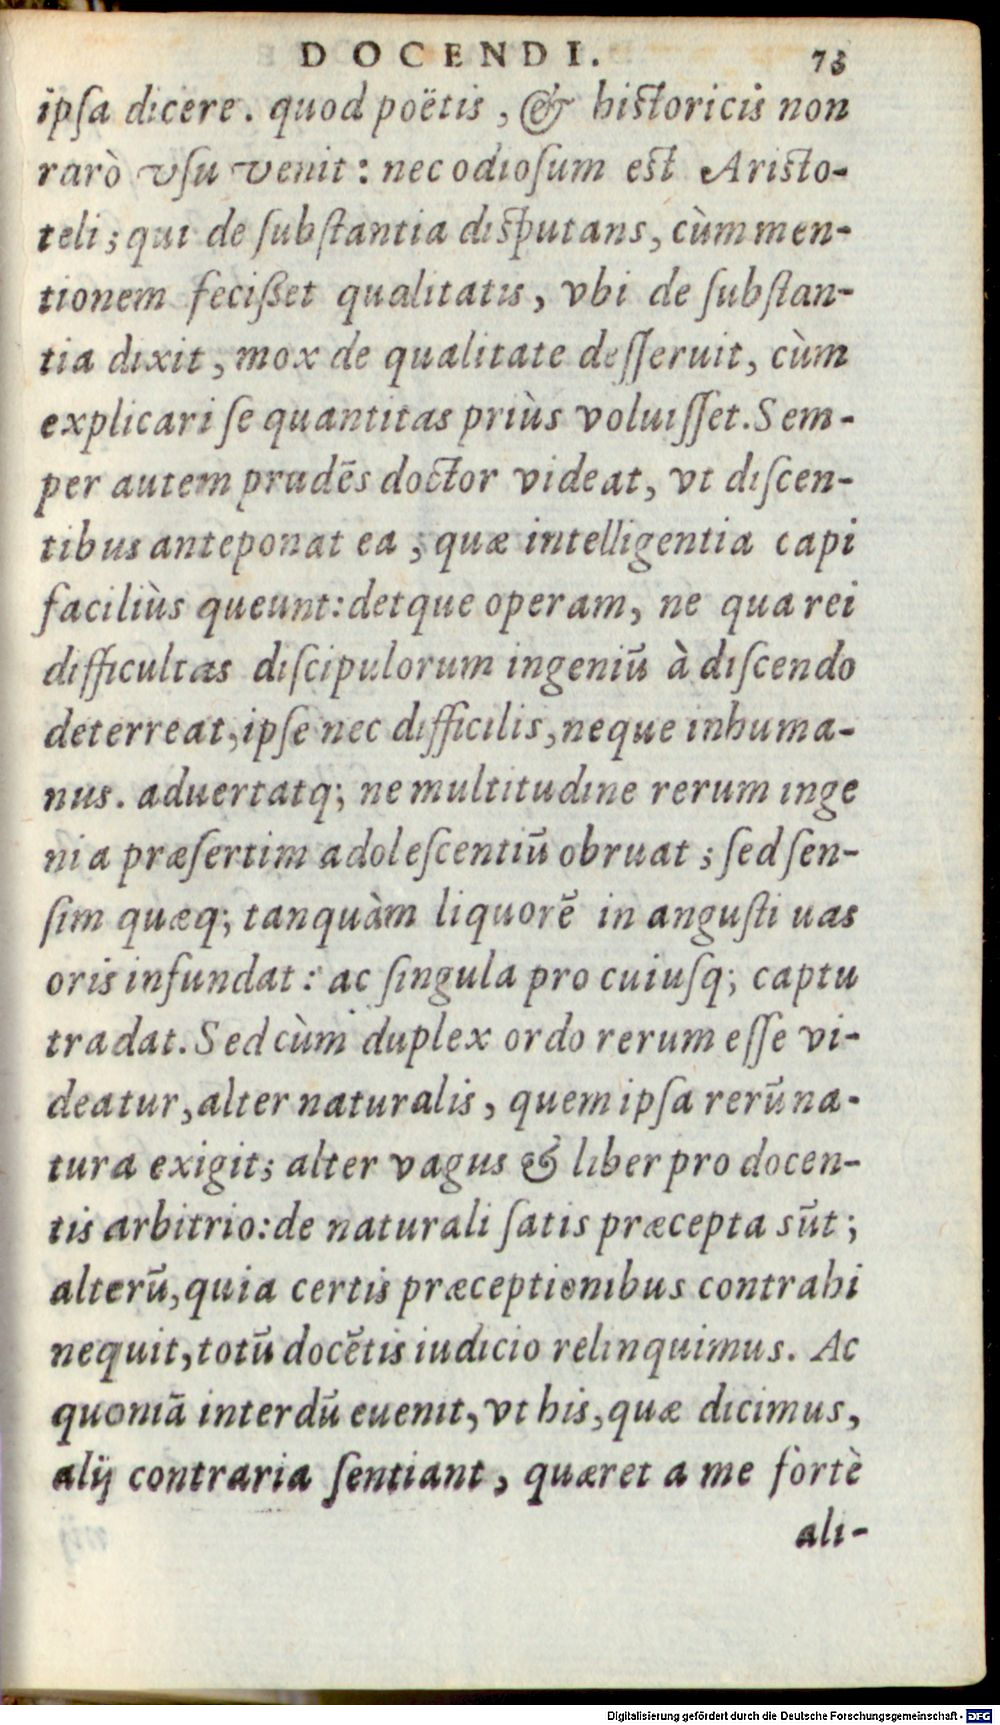 DOCENDI. 73
ipſa dicere. quod poëtis, & hiſtoricis non
rarò vſu venit: nec odioſum eſt Ariſto-
teli; qui de ſubſtantia diſputans, cùm men-
tionem feciſſet qualitatis, vbi de ſubſtan-
tia dixit, mox de qualitate deſſeruit, cùm
explicari ſe quantitas priùs voluiſſet. Sem-
per autem prudēs doctor videat, vt diſcen-
tibus anteponat ea, quæ intelligentia capi
faciliùs queunt: detque operam, ne qua rei
difficultas diſcipulorum ingeniū à diſcendo
deterreat, ipſe nec difficilis, neque inhuma-
nus. aduertatq; ne multitudine rerum inge
nia præſertim adoleſcentiū obruat; ſed ſen-
ſim quæq; tanquàm liquorē in anguſti uas
oris infundat: ac ſingula pro cuiuſq; captu
tradat. Sed cùm duplex ordo rerum eſſe vi-
deatur, alter naturalis, quem ipſa rerū na-
tura exigit; alter vagus & liber pro docen-
tis arbitrio: de naturali ſatis præcepta sūt;
alterū, quia certis præceptionibus contrahi
nequit, totū docētis iudicio relinquimus. Ac
quoniā interdū euenit, vt his, quæ dicimus,
alij contraria ſentiant, quæret a me fortè
ali-
Digitalisierung gefördert durch die Deutsche Forschungsgemeinschaft - DFG